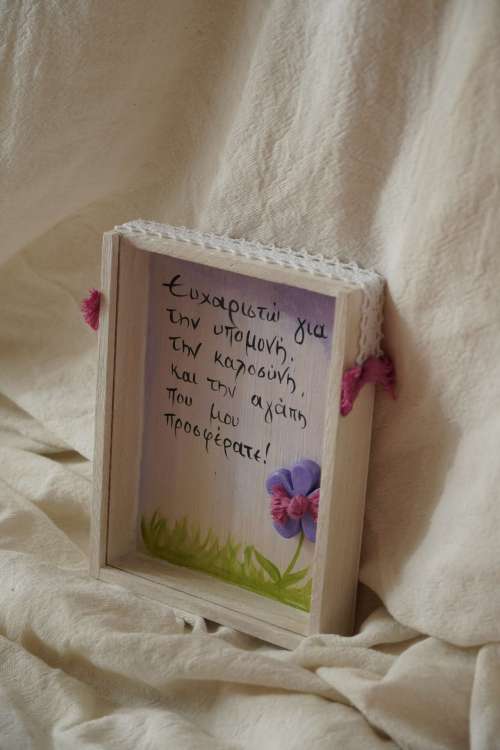 Ευχαριστώ για
την υπομονή,
την καλοσύνη,
και την αγάπη
που μου
προσφέρατε!